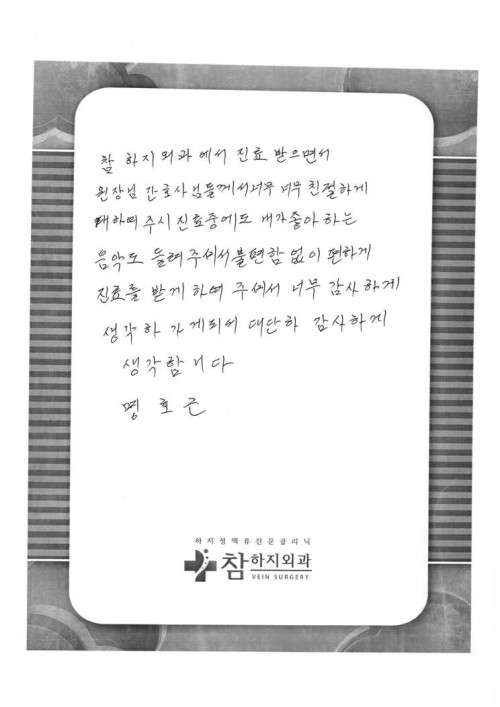 참 하지외과에서 진료 받으면서
원장님 간호사님들께서 너무 너무 친절하게
대하여 주시 진료중에도 내가 좋아 하는
음악도 들려 주셔서 불편함 없이 편하게
진료를 받게 하여 주셔서 너무 감사하게
생각하 가게되어 대단하 감사하게
생각합니다
명호근
하지정맥류전문클리닉
참하지외과
VEIN SURGERY